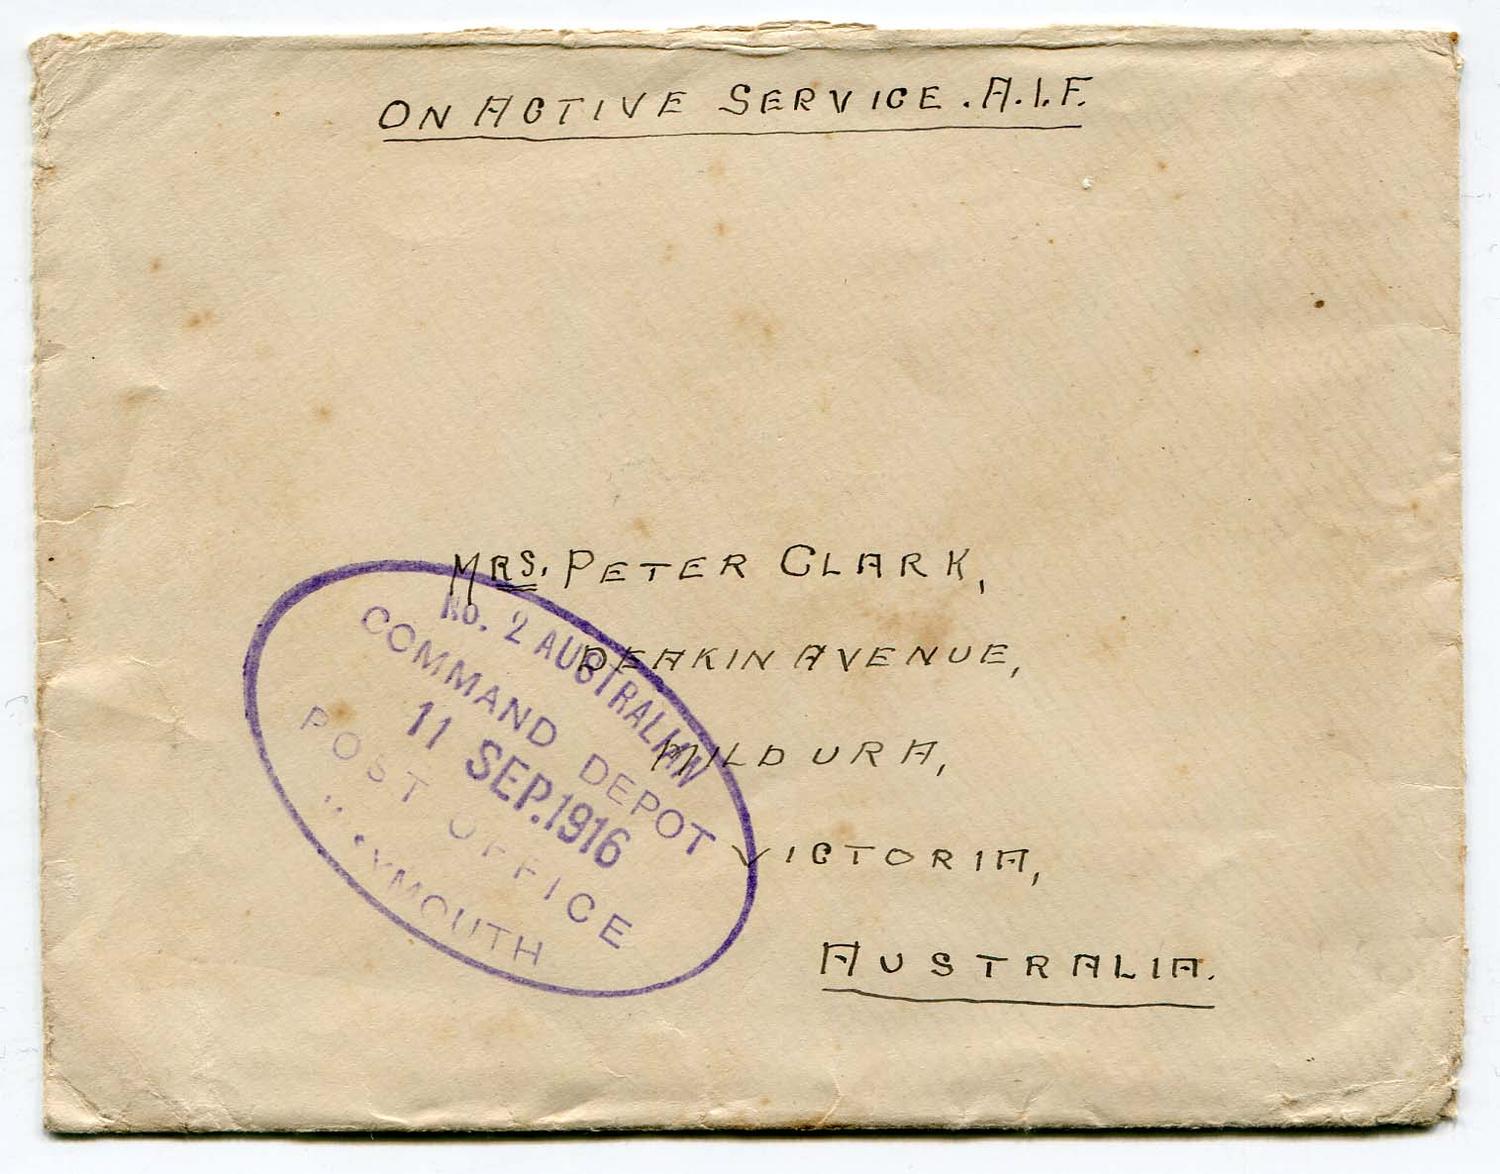 ON ACTIVE SERVICE. A.I.F.
MRS. PETER CLARK,
DEAKIN AVENUE,
MILDURA,
VICTORIA,
AUSTRALIA.
No. 2 AUSTRALIAN
COMMAND DEPOT
11 SEP.1916
POST OFFICE
WEYMOUTH